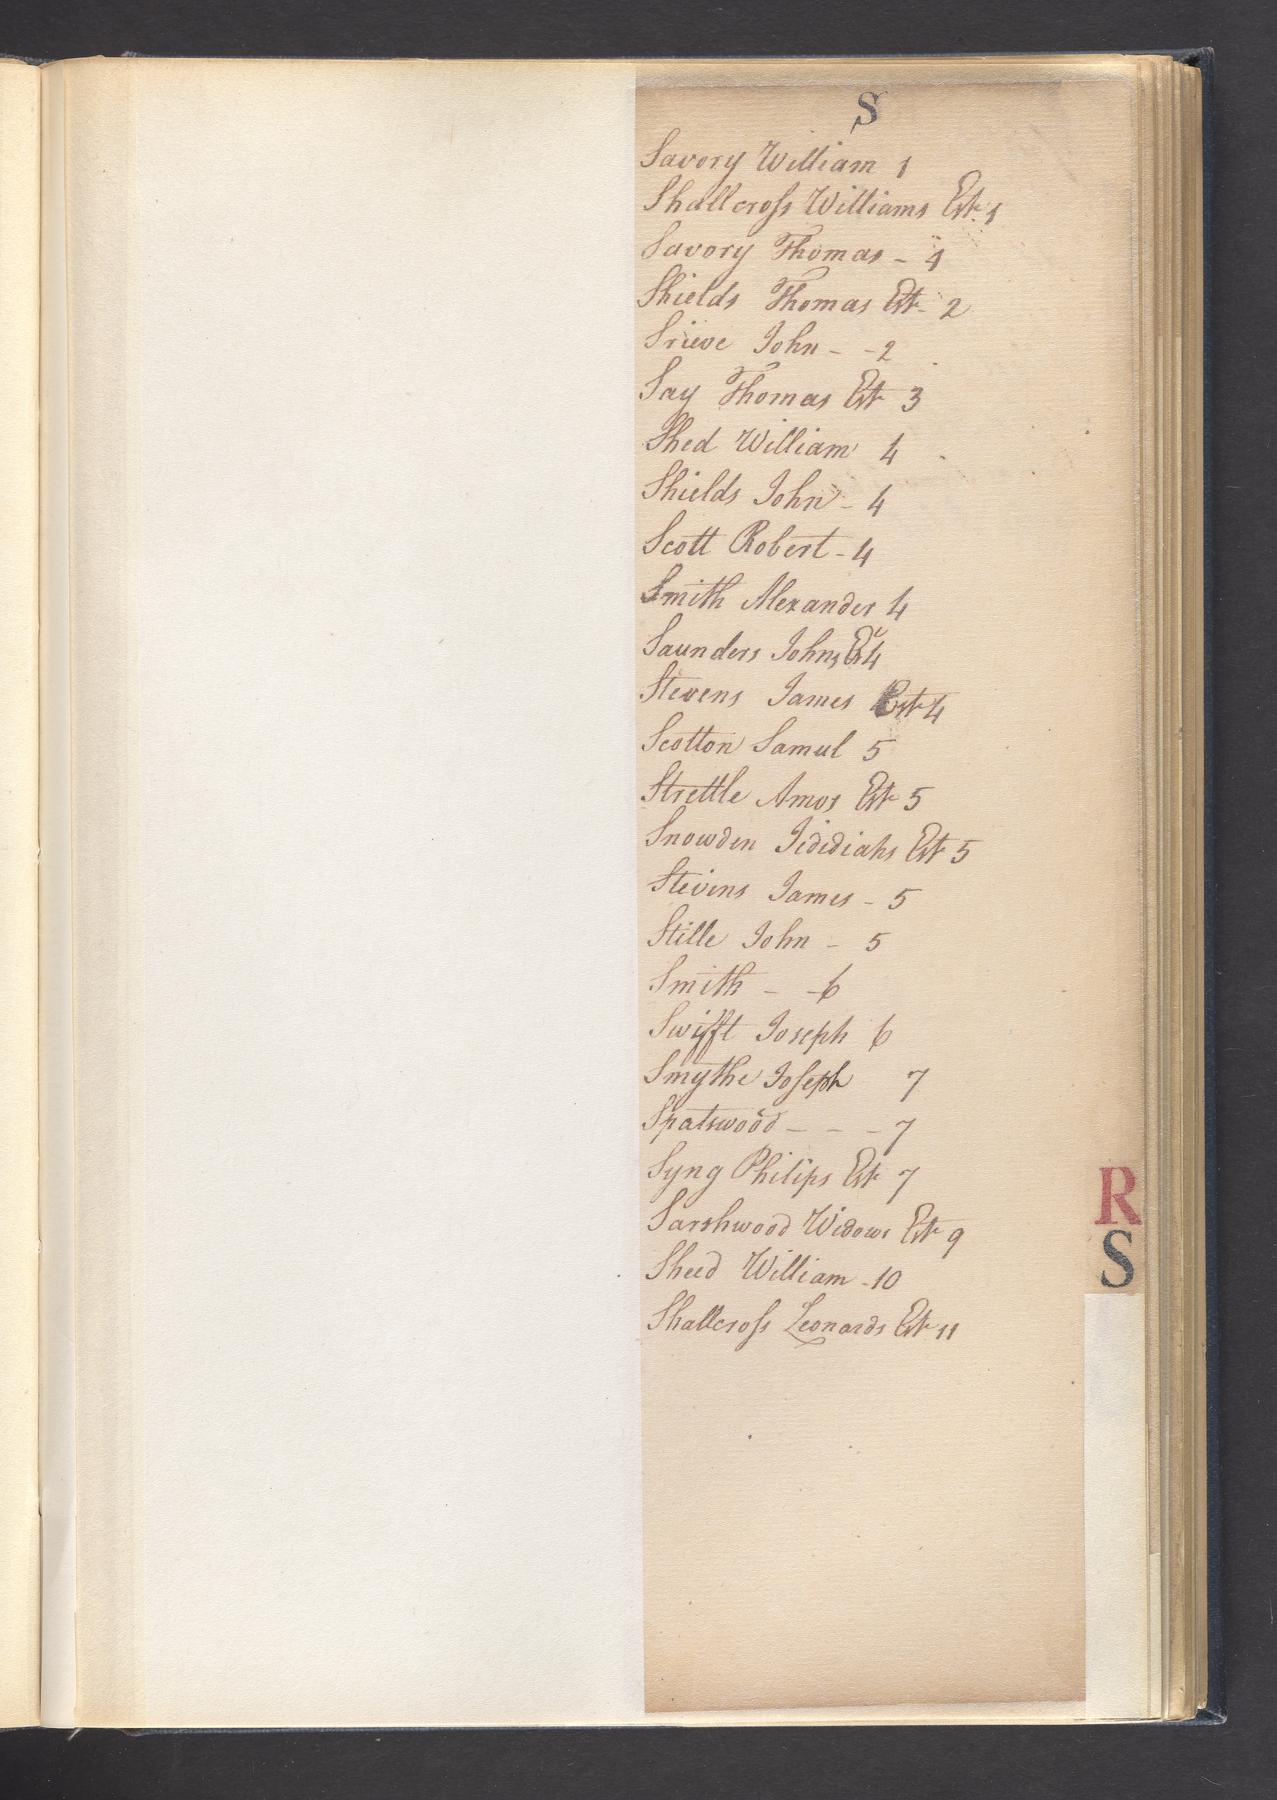 S
Savory William 1
Shallcroſs Williams Est 1
Savory Thomas - 1
Shields Thomas Est 2
Srieve John - - 2
Say Thomas Est 3
Shed William 4
Shields John - 4
Scott Robert - 4
Smith Alexander 4
Saunders Johns Est 4
Stevens James Est 4
Scotton Samul 5
Strettle Amos Est 5
Snowden Jididiahs Est 5
Stevens James - 5
Stille John - 5
Smith - - 6
Swifft Joseph 6
Smythe Joſeph 7
Spatswood - - - 7
Syng Philips Est 7
Sarshwood Widows Est 9
Sheed William - 10
Shallcroſs Leonards Est 11
R
S